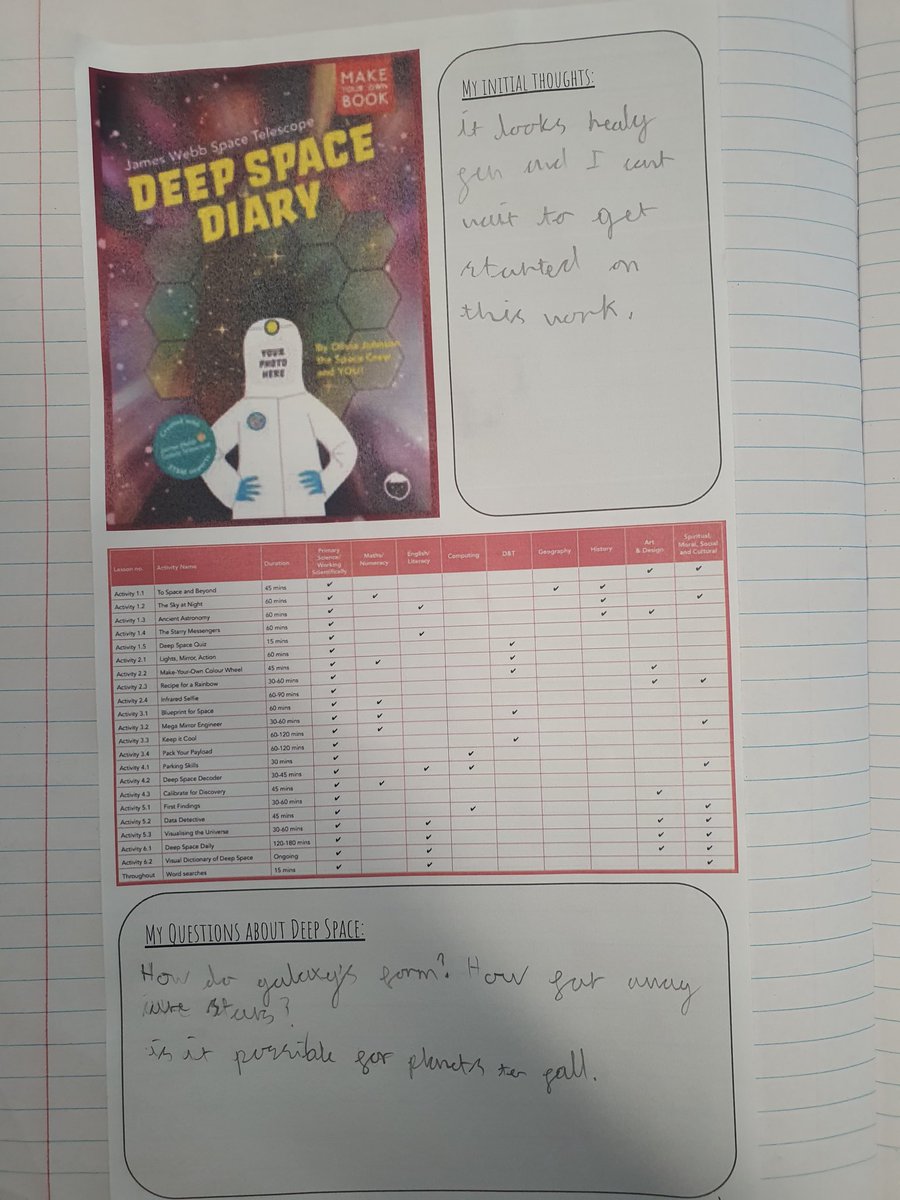 MAKE
YOUR OWN
BOOK
James Webb Space Telescope
DEEP SPACE
DIARY
YOUR
PHOTO
HERE
By Olivia Johnson,
the Space Crew
and YOU!
Created with
STEM experts
My initial thoughts:
it looks really
fun and I cant
wait to get
started on
this work.
Lesson no. Activity Name Duration Primary Science/ Working Scientifically Maths/ Numeracy English/ Literacy Computing D&T Geography History Art & Design Spiritual, Moral, Social and Cultural
Activity 1.1 To Space and Beyond 45 mins
Activity 1.2 The Sky at Night 60 mins
Activity 1.3 Ancient Astronomy 60 mins
Activity 1.4 The Starry Messengers 60 mins
Activity 1.5 Deep Space Quiz 15 mins
Activity 2.1 Lights, Mirror, Action 60 mins
Activity 2.2 Make-Your-Own Colour Wheel 45 mins
Activity 2.3 Recipe for a Rainbow 30-60 mins
Activity 2.4 Infrared Selfie 60-90 mins
Activity 3.1 Blueprint for Space 60 mins
Activity 3.2 Mega Mirror Engineer 30-60 mins
Activity 3.3 Keep it Cool 60-120 mins
Activity 3.4 Pack Your Payload 60-120 mins
Activity 4.1 Parking Skills 30 mins
Activity 4.2 Deep Space Decoder 30-45 mins
Activity 4.3 Calibrate for Discovery 45 mins
Activity 5.1 First Findings 30-60 mins
Activity 5.2 Data Detective 45 mins
Activity 5.3 Visualising the Universe 30-60 mins
Activity 6.1 Deep Space Daily 120-180 mins
Activity 6.2 Visual Dictionary of Deep Space Ongoing
Throughout Word searches 15 mins
My Questions about Deep Space:
How do galaxy's form? How far away
are stars?
is it possible for planets to fall.